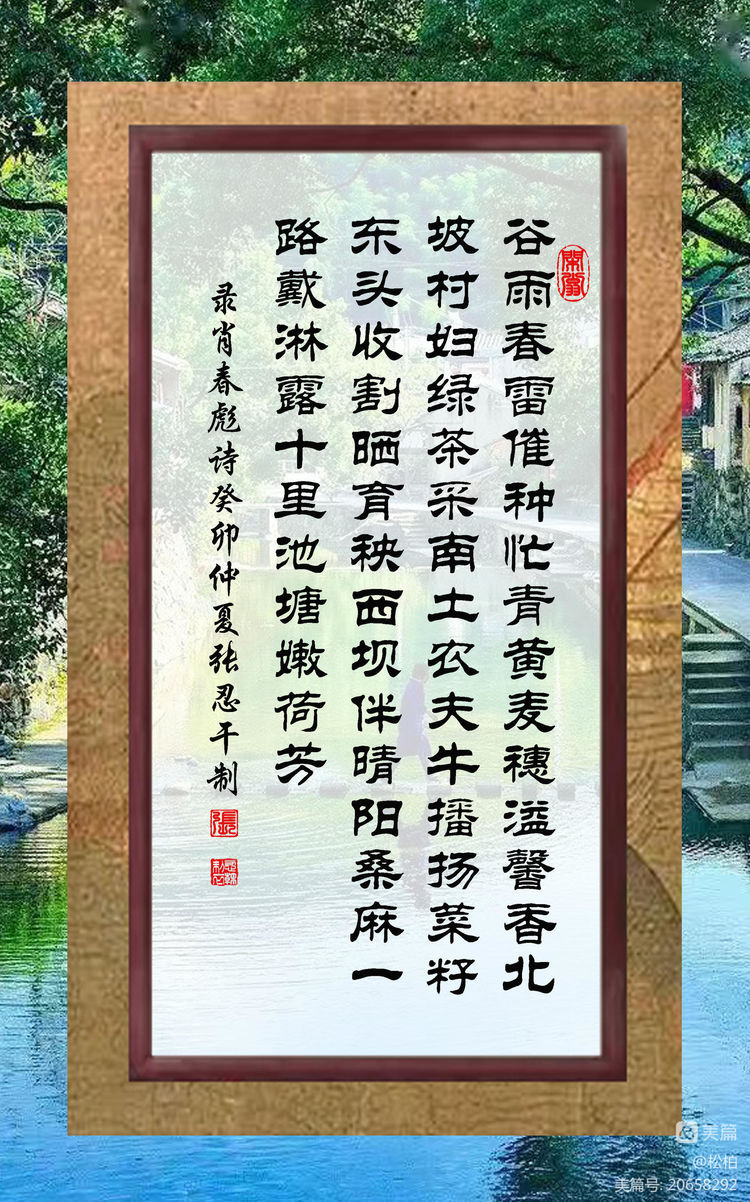 谷雨春雷催种忙青黄麦穗溢馨香北
坡村妇绿茶采南土农夫牛播扬菜籽
东头收割晒育秧西坝伴晴阳桑麻一
路戴淋露十里池塘嫩荷芳
录肖春彪诗癸卯仲夏张忍干制
張
美篇
@松柏
美篇号: 20658292